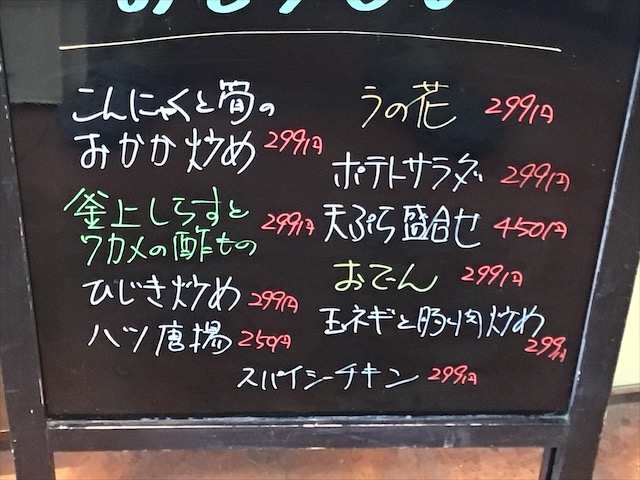 こんにゃくと筍の
おかか炒め 299円
釜上しらすと
ワカメの酢もの 299円
ひじき炒め 299円
ハツ唐揚 250円
うの花 299円
ポテトサラダ 299円
天ぷら盛合せ 450円
おでん 299円
玉ネギと豚肉炒め
299円
スパイシーチキン 299円